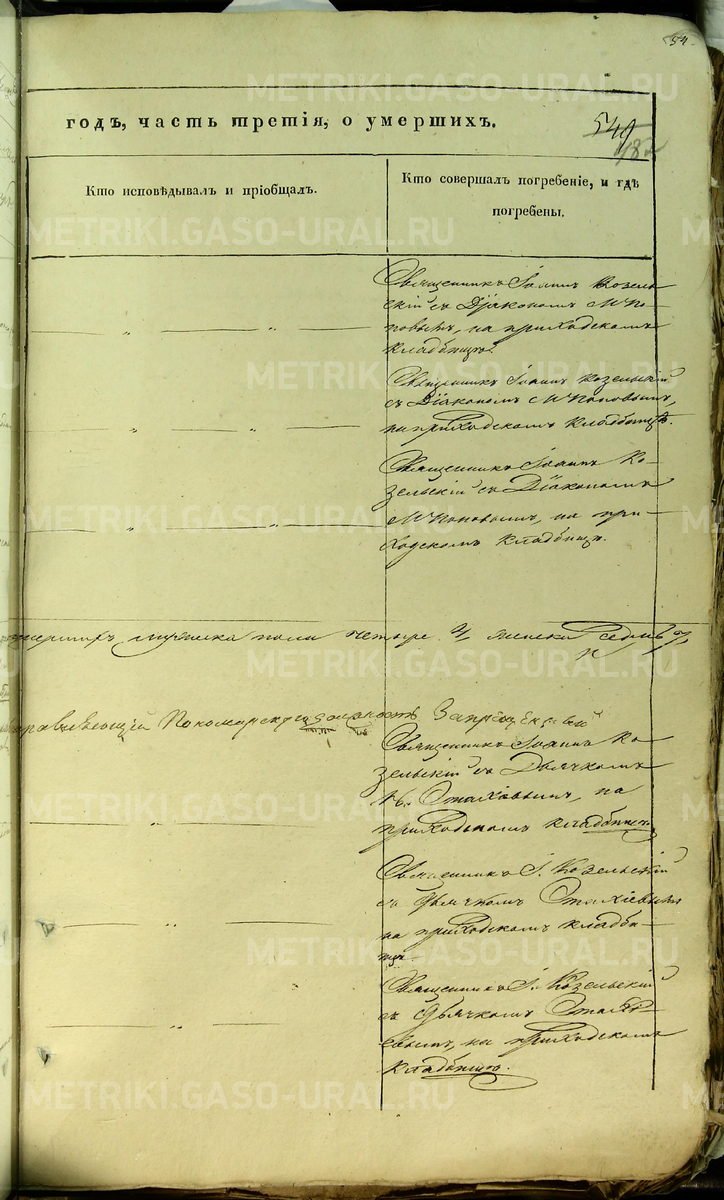 54.
METRIKI.GASO-URAL.RU
годъ, часть третія, о умершихъ.
549
Кто исповѣдывалъ и пріобщалъ.
Кто совершалъ погребеніе, и гдѣ
погребены.
Священникъ Іоаннъ Козель-
скій съ Діакономъ М По-
повымъ, на приходскомъ
кладбищѣ.
Священникъ Іоаннъ Козельскій
съ Діакономъ М Поповымъ,
на приходскомъ кладбищѣ.
Священникъ Іоаннъ Ко-
зельскій съ Діакономъ
М Поповымъ, на при-
ходскомъ кладбищѣ.
мужеска пола четыре 4, женска седмь 7,
Пономарскую должность
Священникъ Іоаннъ Ко-
зельскій съ Дьячкомъ
на
приходскомъ кладбищѣ.
Священникъ І. Козельскій
съ Дьячкомъ Стахіевымъ
на приходскомъ кладби-
щѣ.
Священникъ І. Козельскій
съ Дьячкомъ Стахі-
евымъ, на приходскомъ
кладбищѣ.